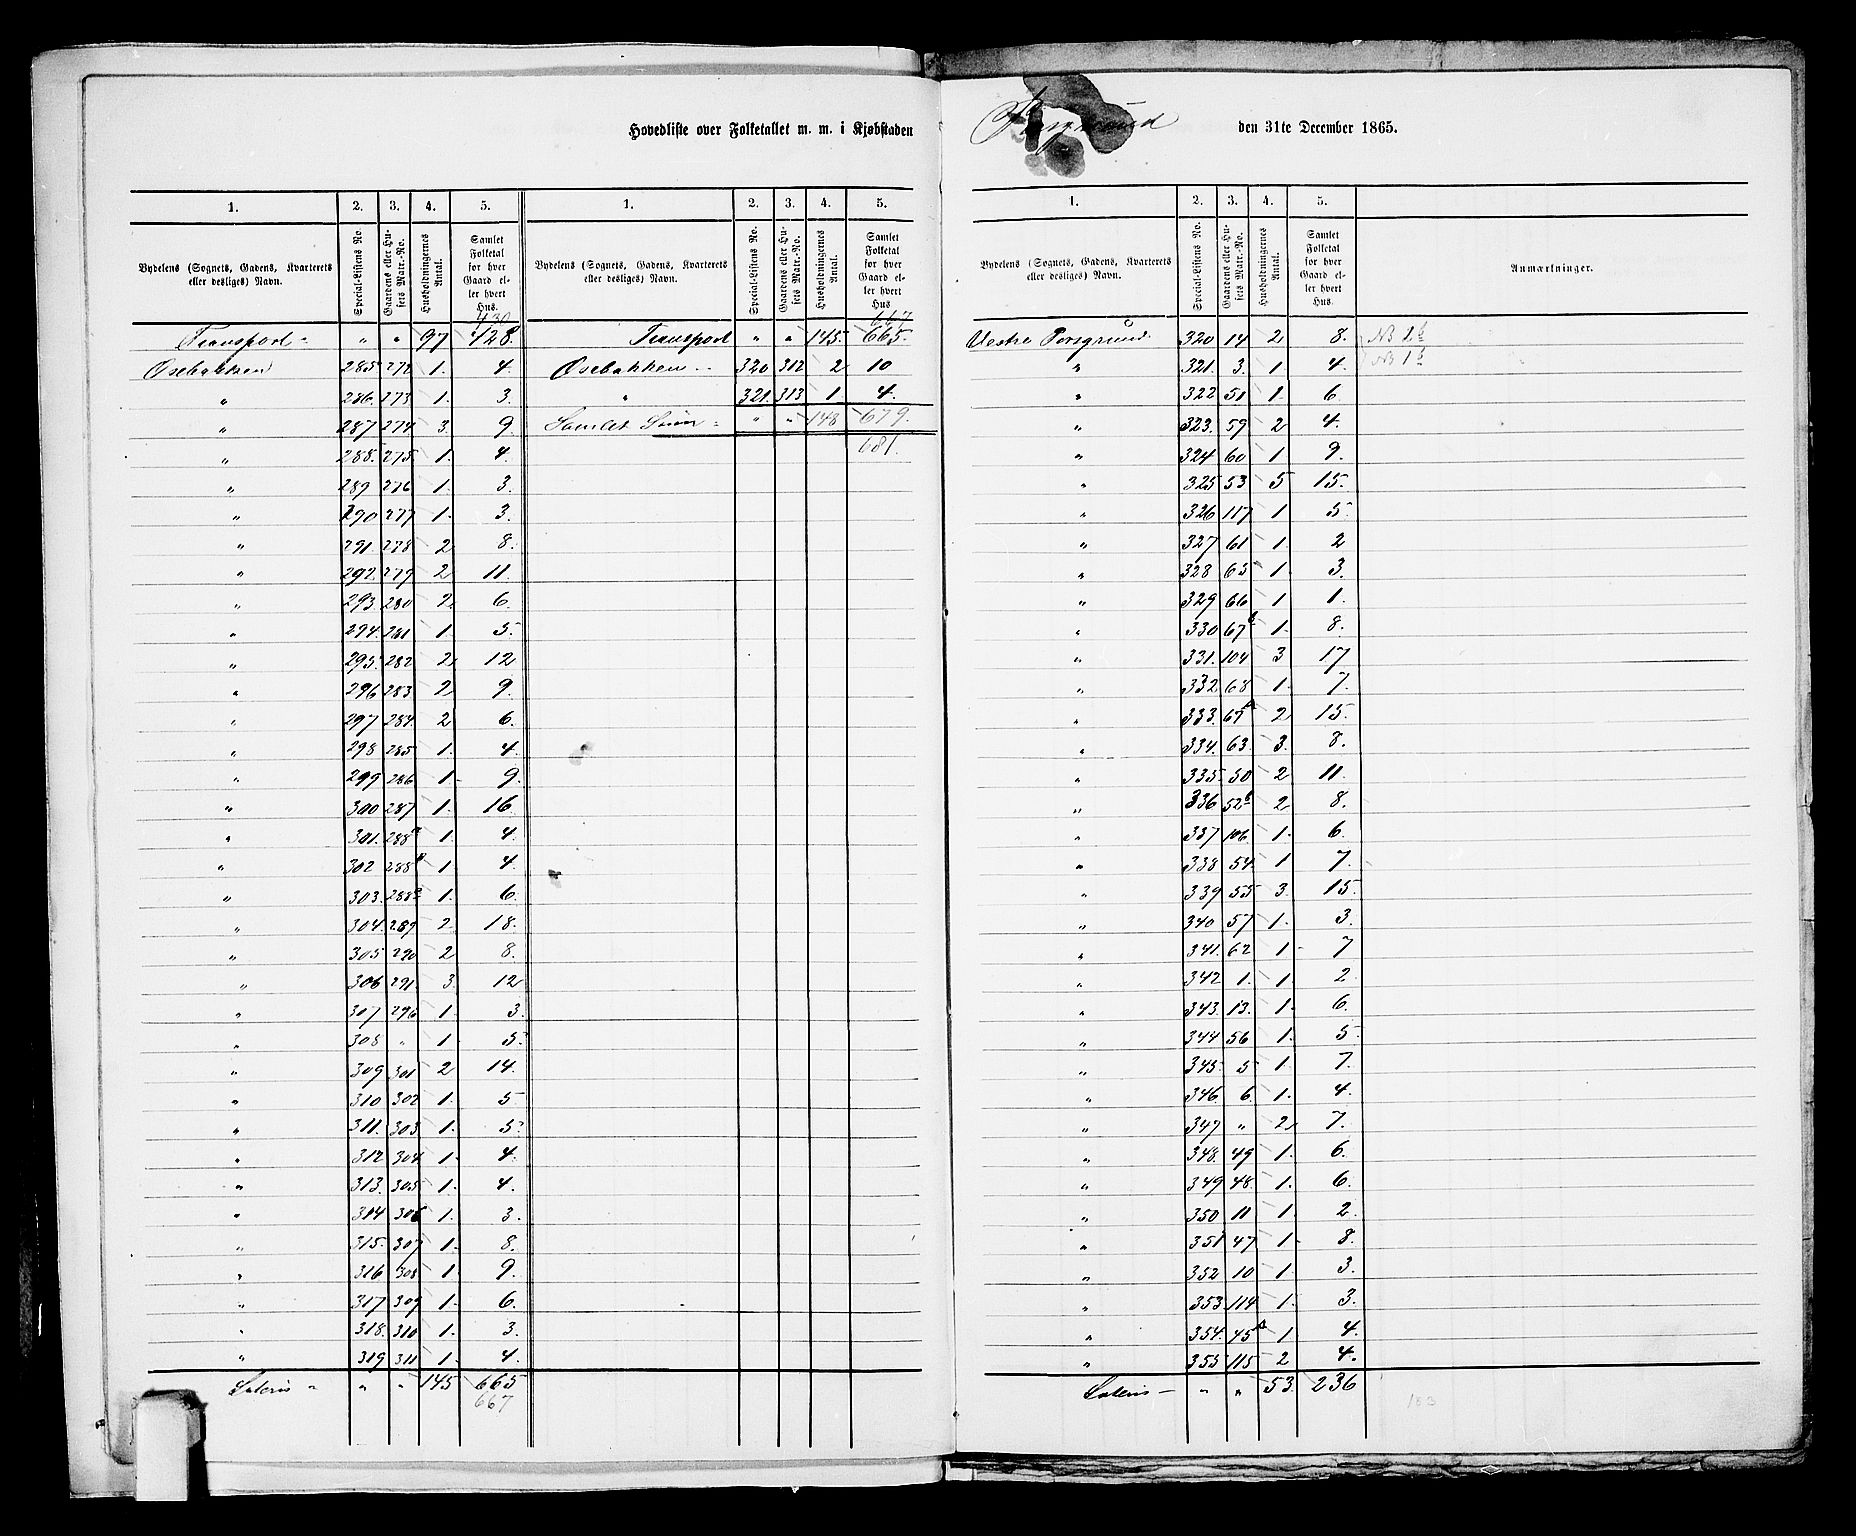 Hovedliste over Folketallet m. m. i Kjøbstaden Porsgrund den 31te December 1865.
1. 2. 3. 4. 5. 1. 2. 3. 4. 5.
Bydelens (Sognets, Gadens, Kvarterets eller desliges) Navn. Special-Listens No. Gaardens eller Husets Matr.-No. Husholdningernes Antal. Samlet Folketal for hver Gaard eller hvert Hus. Bydelens (Sognets, Gadens, Kvarterets eller desliges) Navn. Special-Listens No. Gaardens eller Husets Matr.-No. Husholdningernes Antal. Samlet Folketal for hver Gaard eller hvert Hus.
430
Transport " " 97 428.
Osebakken 285 272 1. 4.
" 286. 273 1. 3.
" 287 274 3. 9.
" 288. 275 1. 4.
" 289 276 1. 3.
" 290 277 1. 3.
" 291. 278 2 8.
" 292. 279 2 11.
" 293. 280 2 6.
" 294. 281 1. 5.
" 295. 282 2 12
" 296 283 2 9.
" 297 284. 2 6.
" 298 285 1. 4.
" 299 286 1. 9.
" 300 287 1. 16.
" 301. 288 1. 4.
" 302 288 1 4.
" 303. 288 1. 6.
" 304. 289 2 18.
" 305 290 2 8.
" 306 291. 3. 12
" 307 296 1. 3.
" 308 " 1. 5.
" 309 301 2 14.
" 310 302 1. 5.
" 311. 303 1. 5.
" 312 304 1. 4.
" 313. 305 1. 4.
" 314 306 1. 3.
" 315. 307 1. 8.
" 316 308 1. 9.
" 317 309 1. 6.
" 318. 310 1. 3.
" 319 311 1. 4.
Lateris " " 145 665
667
667
Transport " " 145. 665.
Osebakken 320 312 2 10
" 321. 313 1 4.
Samlet Sum " " 148 679.
681.
1. 2. 3. 4. 5.
Bydelens (Sognets, Gadens, Kvarterets eller desliges) Navn. Special-Listens No. Gaardens eller Husets Matr.-No. Husholdningernes Antal. Samlet Folketal for hver Gaard eller hvert Hus. Anmærkninger.
Vestre Porsgrund. 320 14 2 8.
" 321. 3. 1 4.
" 322 51 1. 6
" 323. 59 2 4.
" 324 60 1 9.
" 325 53 5 15.
" 326 117 1 5.
" 327 61 1. 2
" 328 65 1. 3.
" 329 66 1 1.
" 330 67 1. 8.
" 331. 104 3 17
" 332 68 1. 7.
" 333. 67 2 15.
" 334. 63. 3. 8.
" 335. 50 2 11.
" 336 52 2 8.
" 337 106. 1. 6.
" 338 54. 1 7.
" 339 55 3. 15.
" 340 57 1. 3.
" 341. 62 1. 7
" 342 1. 1. 2.
" 343. 13. 1. 6.
" 344 56 1. 5
" 345 5 1. 7.
" 346. 6. 1. 4.
" 347 " 2 7.
" 348. 49 1. 6.
" 349 48. 1. 6.
" 350 11 1. 2.
" 351 47 1. 8.
" 352 10 1. 3.
" 353. 114 1. 3.
" 354. 45 1 4.
" 355 115 2 4.
Lateris " " 53. 236
183